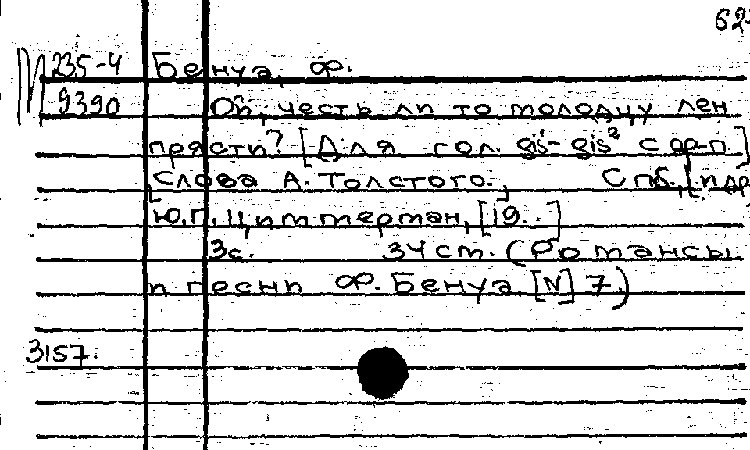 62
М 235-4 Бенуа, Ф.
9390 Ой, честь ли то молодцу лен
прясти? [Для гол. gis¹-gis² с ф-п.]
[Слова А. Толстого.] Спб.,
Ю.Г. Циммерман, [19..]
3с. 34 ст. (Романсы
и песни Ф. Бенуа [N] 7.)
3157.